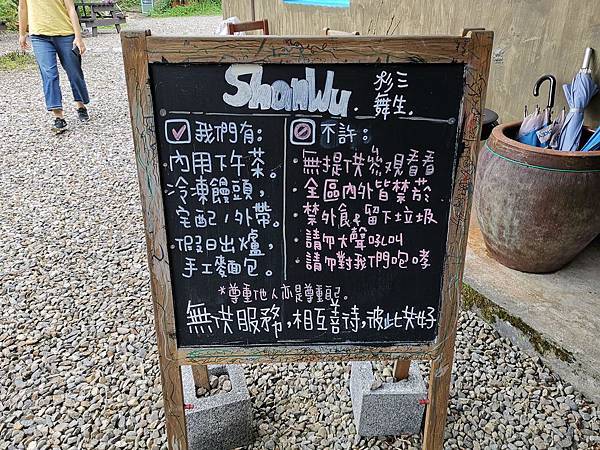 ShanWu
杉三
舞生.
我們有:
・內用下午茶。
・冷凍饅頭,
宅配/外帶。
・假日出爐,
手工麵包。
不許:
・無提供參觀看看
・全區內外皆禁菸
・禁外食&留下垃圾
・請勿大聲吼叫
・請勿對我們咆哮
*尊重他人亦是尊重自己。
無供服務,相互善待,彼此快好